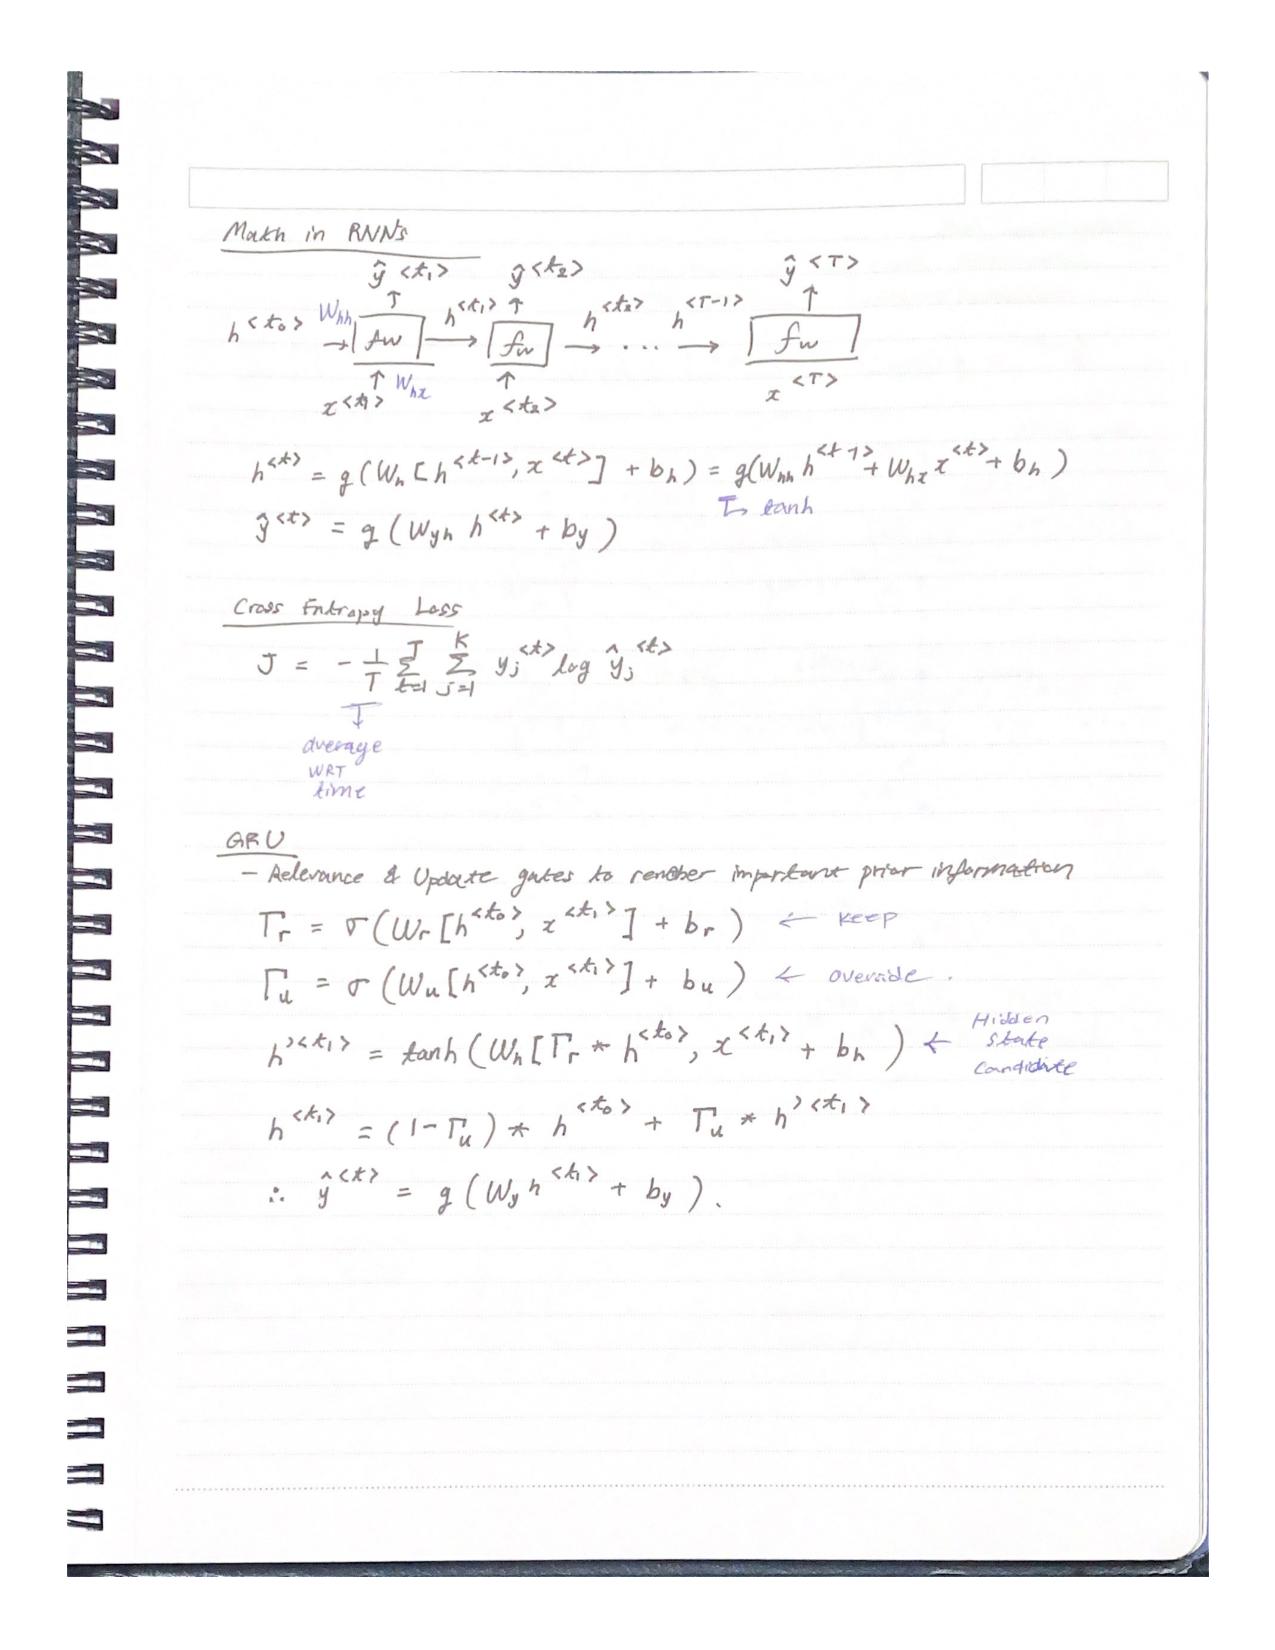 Math in RNNs
ŷ<t₁> ŷ<t₂> ŷ<T>
h<t₀> Whh → fw → h<t₁> → fw → h<t₂> ... h<T-1> → fw
↑ Whx
x<t₁> x<t₂> x<T>
h<t> = g(Wh[h<t-1>, x<t>] + bh) = g(Whh h<t-1> + Whx x<t> + bh)
↳ tanh
ŷ<t> = g(Wyh h<t> + by)
Cross Entropy Loss
J = -1/T Σ_{t=1}^{T} Σ_{j=1}^{K} yj<t> log ŷj<t>
↓
average
WRT
time
GRU
- Relevance & Update gates to remeber important prior information
Γr = σ(Wr[h<t₀>, x<t₁>] + br) ← KEEP
Γu = σ(Wu[h<t₀>, x<t₁>] + bu) ← override.
h'<t₁> = tanh(Wh[Γr * h<t₀>, x<t₁> + bh) ← Hidden
state
candidate
h<t₁> = (1-Γu) * h<t₀> + Γu * h'<t₁>
∴ ŷ<t> = g(Wy h<t₁> + by).